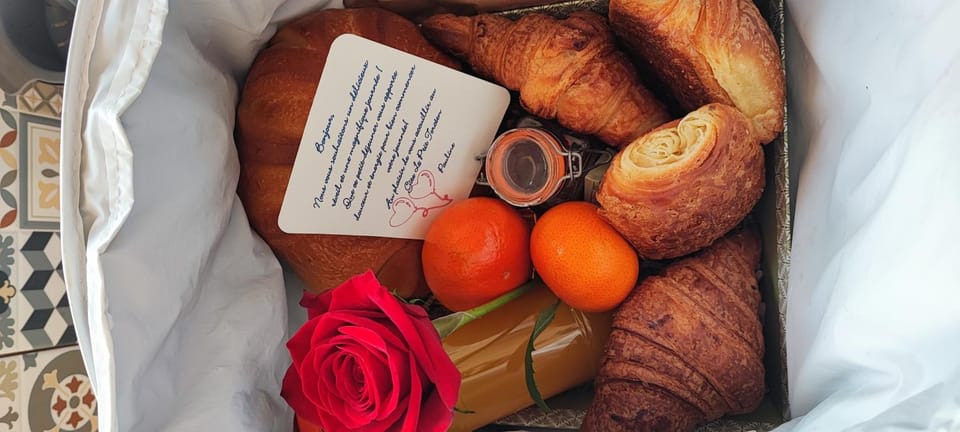 Bonjour,
Nous vous souhaitons un délicieux
réveil et une magnifique journée !
Que ce petit déjeuner vous apporte
douceur et énergie pour bien commencer
votre journée!
Au plaisir de vous accueillir au
Pauline